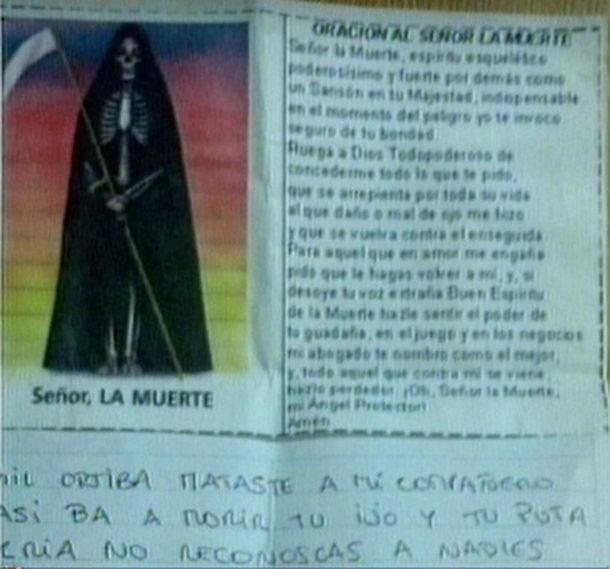 ORACION AL SEÑOR LA MUERTE
Señor la Muerte, espiritu esquelético
poderosísimo y fuerte por demás como
un Sansón en tu Majestad, indispensable
en el momento del peligro yo te invoco
seguro de tu bondad
Ruega a Dios Todopoderoso de
concederme todo lo que te pido,
que se arrepienta por toda su vida
al que daño o mal de ojo me hizo
y que se vuelva contra el enseguida
Para aquel que en amor me engaña
pido que le hagas volver a mí, y, si
desoye tu voz extraña Buen Espiritu
de la Muerte hazle sentir el poder de
tu guadaña, en el juego y en los negocios
mi abogado te nombro como el mejor,
y, todo aquel que contra mí se viene,
hazlo perdedor. ¡Oh, Señor la Muerte,
mi Ángel Protector!
Amén
Señor, LA MUERTE
ORTIBA MATASTE A MI
ASI BA A MORIR TU IJO Y TU PUTA
CRIA NO RECONOSCAS A NADIES